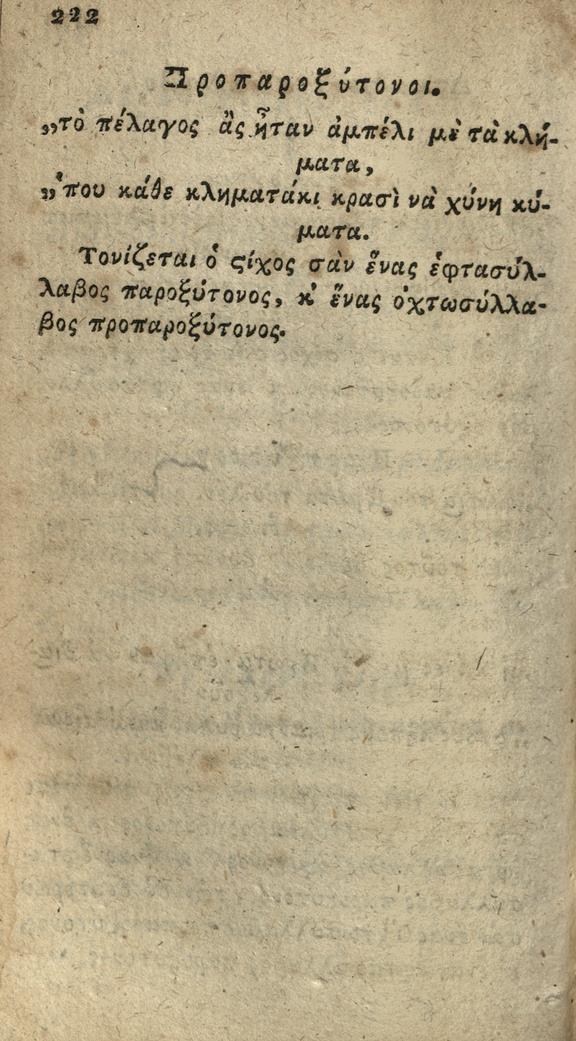 222
Προπαροξύτονοι.
„τὸ πέλαγος ἂς ἦταν ἀμπέλι μὲ τὰ κλή-
ματα,
„ὁπου κάθε κληματάκι κρασὶ νὰ χύνῃ κύ-
ματα.
Τονίζεται ὁ ϛίχος σὰν ἕνας ἑφτασύλ-
λαβος παροξύτονος, κ' ἕνας ὀχτωσύλλα-
βος προπαροξύτονος.